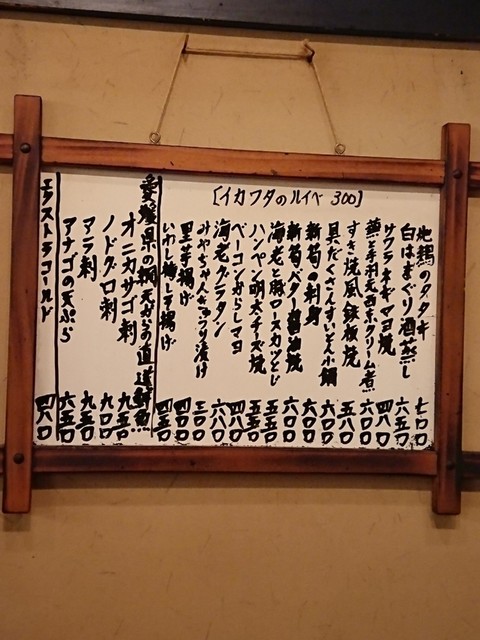 [イカフタのルイベ 300]
地鶏のタタキ 七〇〇
白はまぐり酒蒸し 六五〇
サワラネギマヨ焼 四八〇
蕪と手羽元西京クリーム煮 六〇〇
すき焼風鉄板焼 五八〇
具だくさんすいとん小鍋 六〇〇
新筍の刺身 六〇〇
新筍バター醤油焼 六〇〇
海老と豚ロースカツとじ 五五〇
ハンペン明太チーズ焼 五五〇
ベーコンからしマヨ 四八〇
海老グラタン 六八〇
みやちゃんきゅうり漬け 三〇〇
里芋揚げ 四〇〇
いわし梅しそ揚げ 四五〇
愛媛県の網元からの直送鮮魚
オニカサゴ刺 九五〇
ノドグロ刺 九〇〇
マニラ刺 九五〇
アナゴの天ぷら 六五〇
エクストラコールド 四八〇